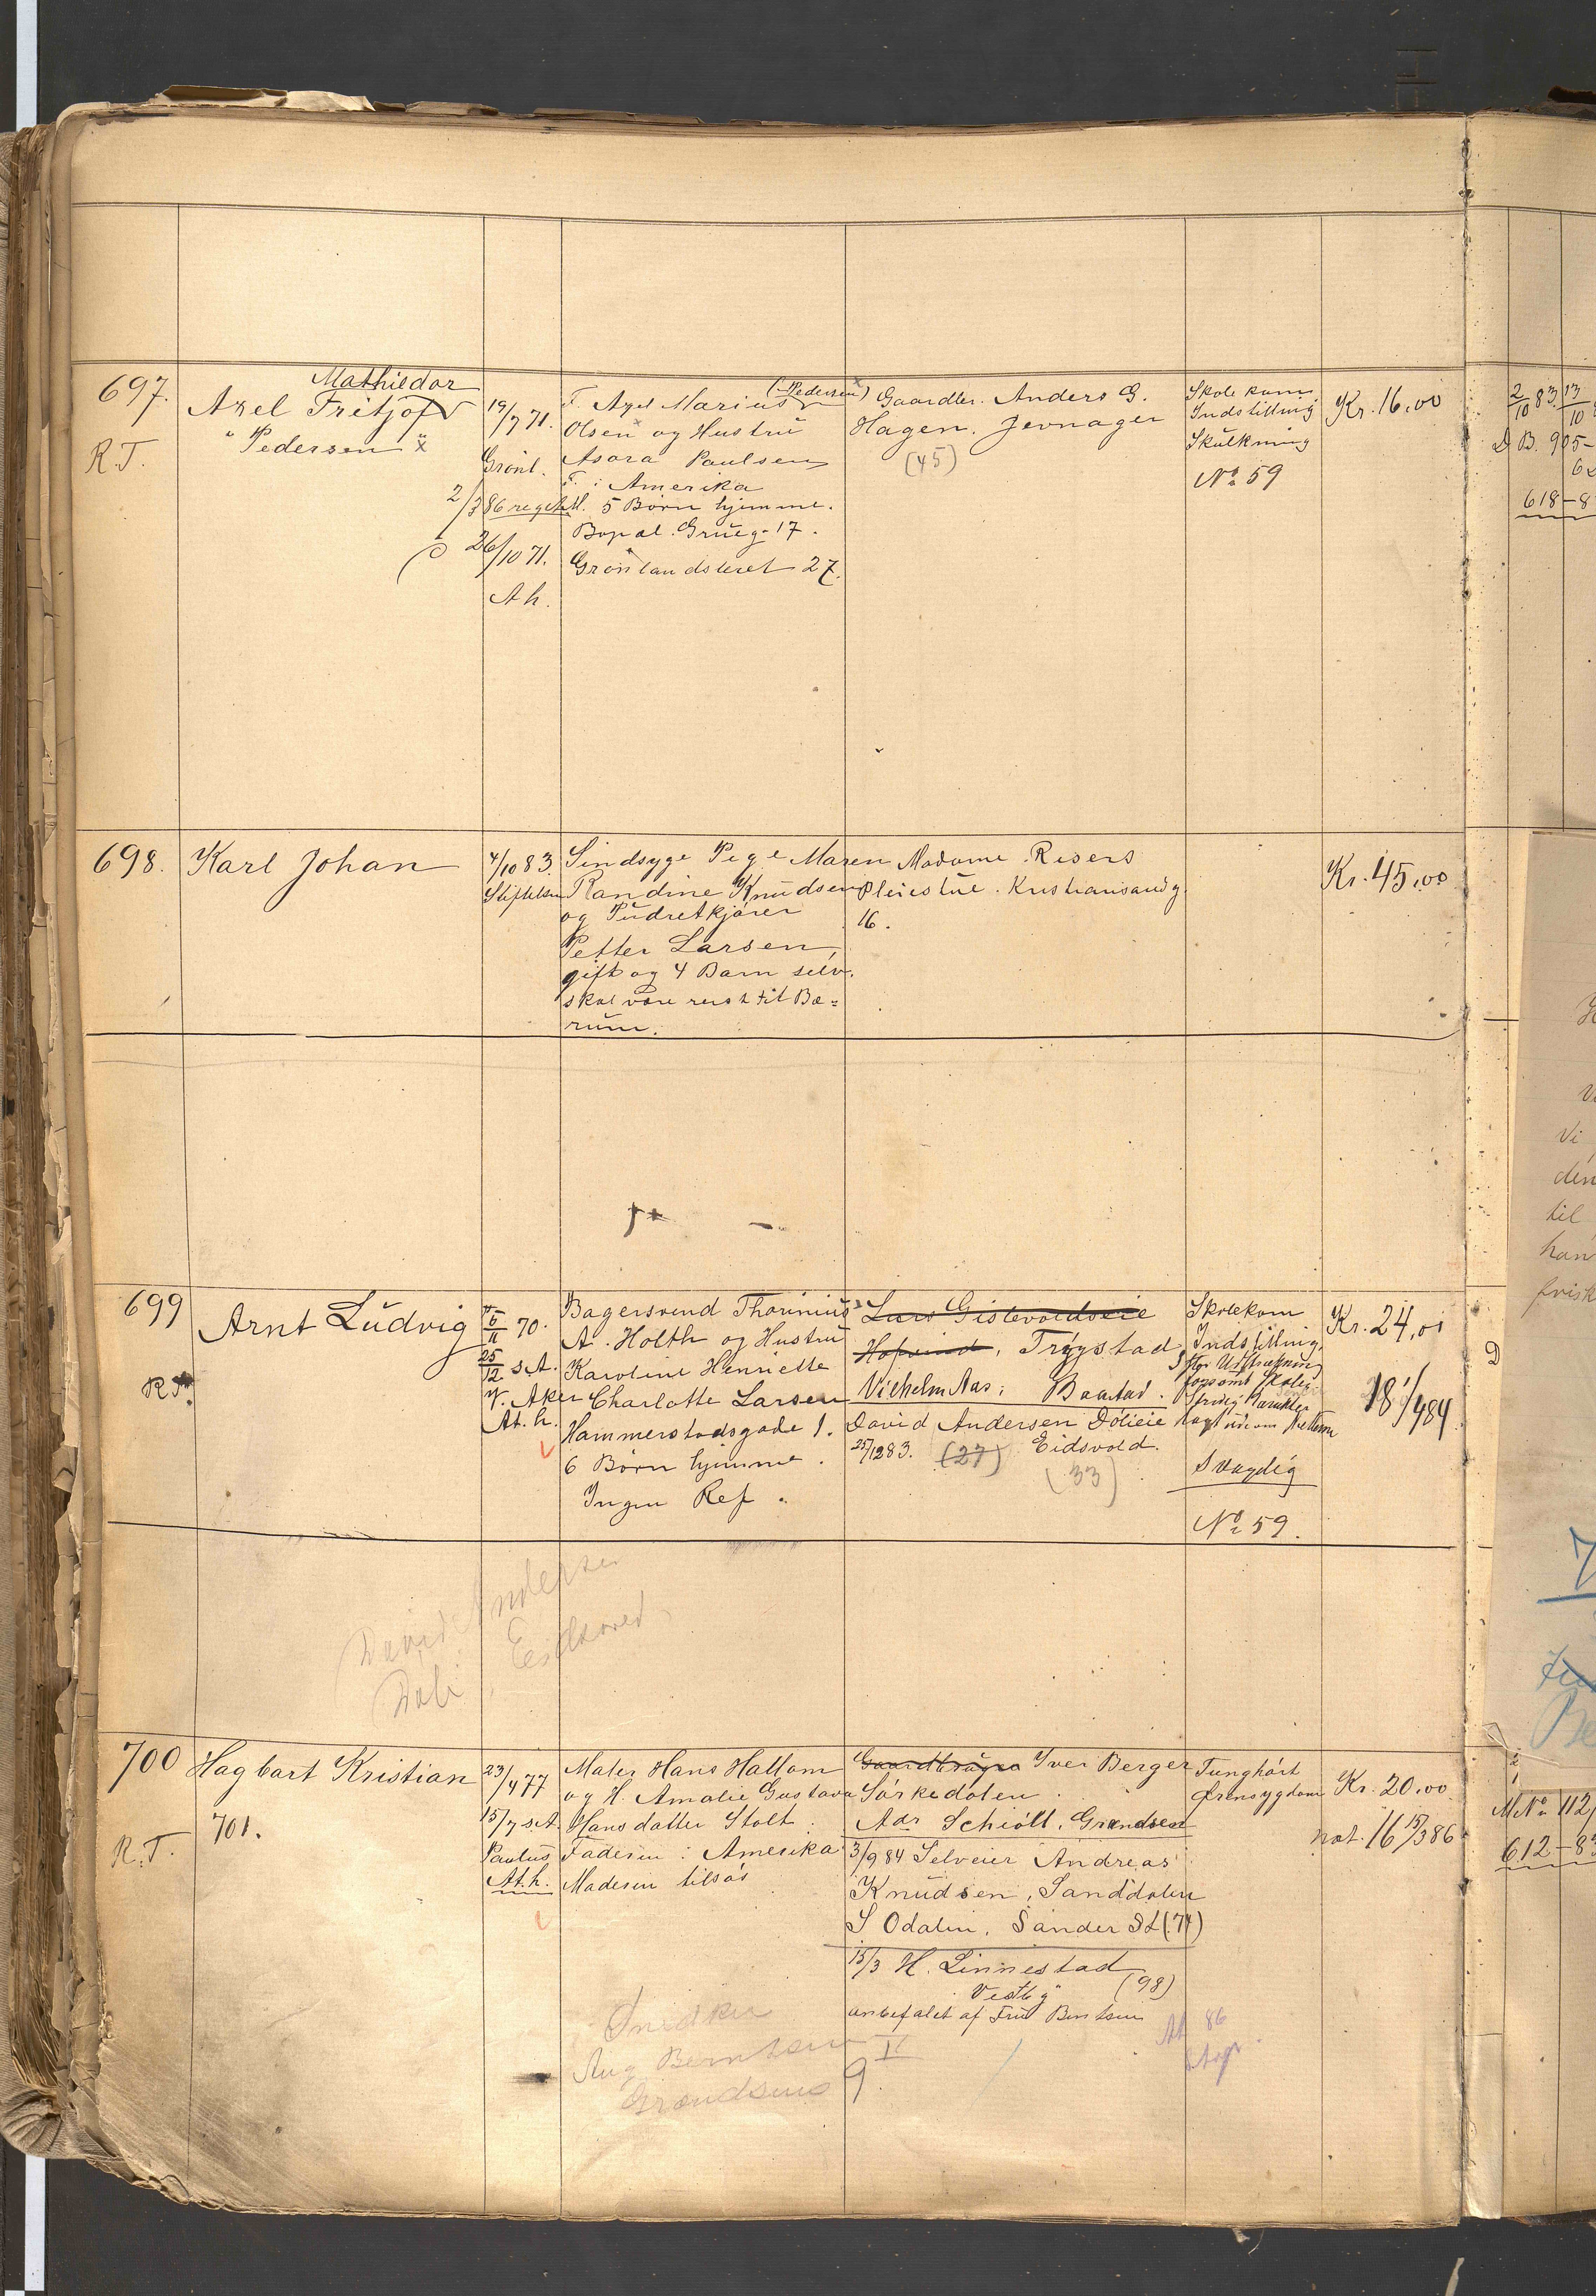 697.
R.T.
Mathildar
Axel Fritjof
" Pedersen "x
19/7 71.
Grønl.
2/3 86
26/10 71.
Ah.
(Pedersen x)
F. Axel Marius
Olsen x og Hustrü
Asora Paulsen
F. i Amerika
M. 5 Børn hjemme.
Bopæl. Grüeg. 17.
Grønlandsleret 27.
Gaardbr. Anders G.
Hagen. Jevnager
(45)
Skolekom
Indstilling
Skülkning
No 59
Kr. 16,00
698.
Karl Johan
4/10 83.
Stiftelsen
Sindsyge Pige Maren
Randine Knüdsen
og Püdretkjører
Petter Larsen,
gift og 4 Barn selv.
skal være reist til Bæ=
rüm.
Madame Risers
Pleiestüe. Kristiansandg.
16.
Kr. 45,00
699
R.T.
Arnt Lüdvig
6/11 70.
25/12 s.A.
V. Aker
At.h.
Bagersvend Thorinius
A. Holth og Hustrü
Karoline Henriette
Charlotte Larsen
Hammerstadsgade 1.
6 Børn hjemme.
Ingen Ref.
Lars Gislevoldseie
Hofvind, Trøgstad
Vilhelm Aas, Baastad.
David Andersen Dølieie
25/12 83. (27) Eidsvold.
(33)
Skolekom
Indstilling,
forsømt Skole
Svagelig
No 59.
Kr. 24,00
18 1/4 84
David Andersen
Døli, Eidsvold
700
R.T.
Hagbart Kristian
701.
23/4 77
15/7 s.A.
Paulus
At.h.
Maler Hans Hallam
og H. Amalie Gustava
Hansdatter Stolt.
Faderen i Amerika
Moderen tilsøs
Gaardbrüger Iver Berger
Sørkedalen
Adr Schiøtt, Grændsen
3/9 84 Selveier Andreas
Knüdsen, Sanddalen
S Odalen, Sander St (74)
15/3 H. Linnestad
Vestby (98)
anbefalet af Frü Berntsen
Tunghørt
Ørensygdom
Kr. 20,00
not. 16 15/3 86
Snedker
Aug Berntsen
Grændsens 9.
II
86
2/10 83
D B. 905-
618-8
vi
den
til
han
frisk
D
M No 112/
612-83